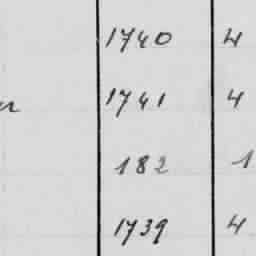 1740 4
1741 4
182 1
1739 4